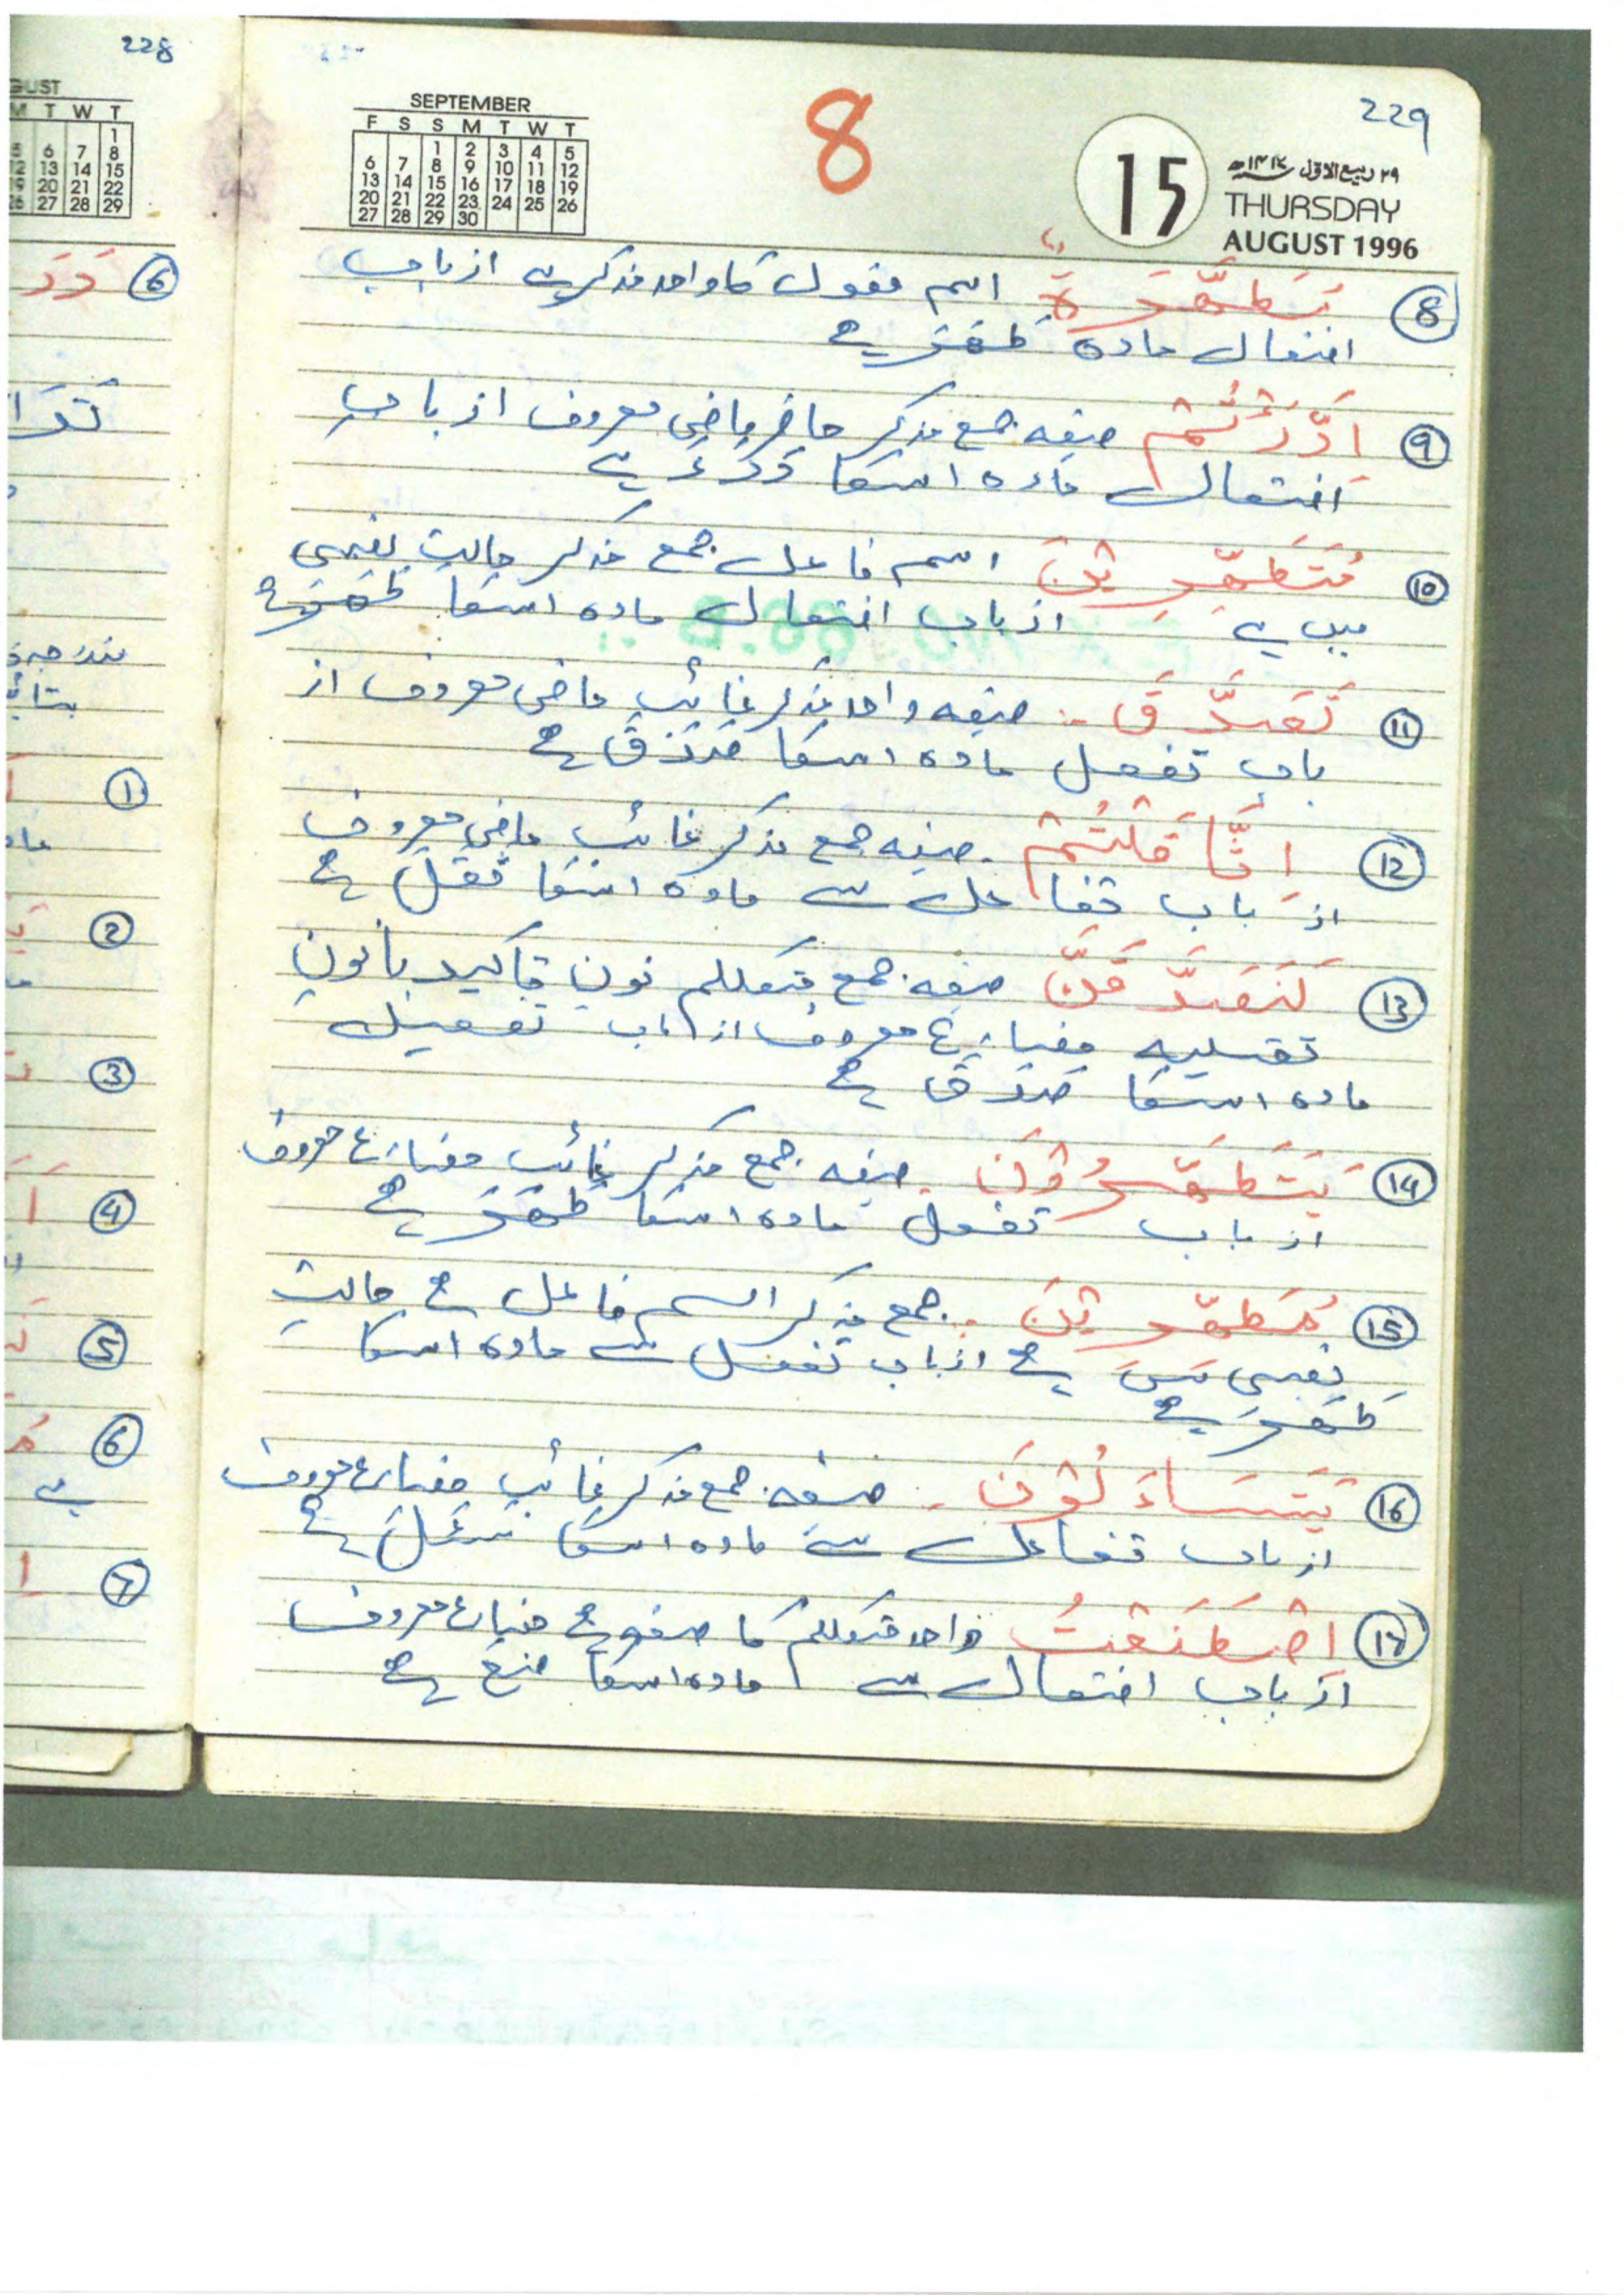 228
GUST
M T W T
1
5 6 7 8
12 13 14 15
19 20 21 22
26 27 28 29
SEPTEMBER
F S S M T W T
1 2 3 4 5
6 7 8 9 10 11 12
13 14 15 16 17 18 19
20 21 22 23 24 25 26
27 28 29 30
8
229
15
۲۹ ربیع الاول ۱۴۱۷ھ
THURSDAY
AUGUST 1996
8 اسم مفعول کا واحد مذکر ہے از باب
افتعال مادہ طَھَرَ ہے
9 اِدّٰرَئْتُمْ صیغہ جمع مذکر حاضر ماضی معروف از باب
افتعال مادہ اسکا دَرَءَ ہے
10 مُتَطَھِّرِیْنَ اسم فاعل جمع مذکر حالت نصبی
میں ہے از باب افتعال مادہ اسکا طَھَرَ ہے
11 تَصَدَّقَ - صیغہ واحد مذکر غائب ماضی معروف از
باب تفعل مادہ اسکا صَدَقَ ہے
12 اِثَّاقَلْتُمْ - صیغہ جمع مذکر غائب ماضی معروف
از باب تفاعل سے مادہ اسکا ثَقَلَ ہے
13 لَنَصَّدَّقَنَّ صیغہ جمع متکلم نون تاکید بانون
ثقلیہ مضارع معروف از باب تفعیل
مادہ اسکا صدق ہے
14 یَتَطَھَّرُوْنَ - صیغہ جمع مذکر غائب مضارع معروف
از باب تفعل مادہ اسکا طَھَرَ ہے
15 مُطَّھِّرِیْنَ - جمع مذکر اسم فاعل ہے حالت
نصبی میں ہے از باب تفعل سے مادہ اسکا
طَھَرَ ہے
16 یَتَسَاءَلُوْنَ - صیغہ جمع مذکر غائب مضارع معروف
از باب تفاعل سے مادہ اسکا سَئَلَ ہے
17 اِصْطَنَعْتُ واحد متکلم کا صیغہ ہے مضارع معروف
از باب افتعال سے مادہ اسکا صَنَعَ ہے
6
1
2
3
4
5
6
ہے
7